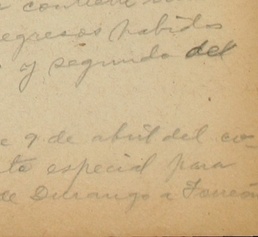 contiene
egresos habidos
y segundo del
e 9 de abril del co-
to especial para
de Durango a Torreón